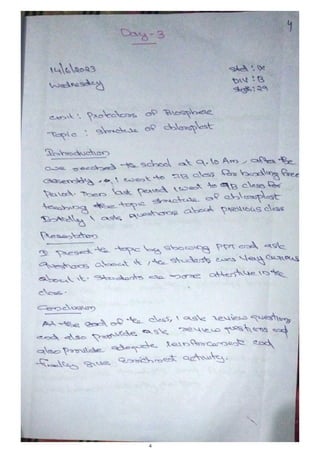 4
Day-3
14/6/2023
Std : IX
Wednesday
Div : B
Strgt: 29
Unit : Protectors of Biosphere
Topic : structure of chloroplast
Introduction
We reached the school at 9.10 Am, after the
assembly, I went to 5B class for handling free
period. Then last period I went to 9B class for
teaching the topic structure of chloroplast
Initially I asks questions about previous class
Presentation
I present the topic by showing PPT and ask
questions about it, the students was very curious
about it. Students are more attentive in the
class.
Conclusion
At the end of the class, I ask review questions
and also provide ask review questions and
also provide adequate reinforcement and
finally give enrichment activity.
4